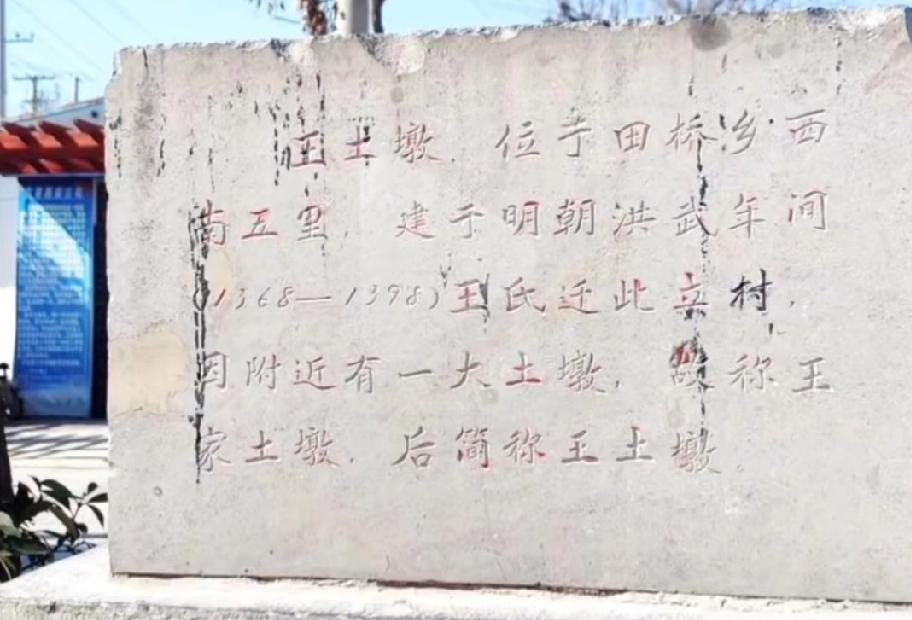 王土墩，位于田桥乡西
南五里，建于明朝洪武年间
(1368—1398)王氏迁此立村，
因附近有一大土墩，故称王
家土墩，后简称王土墩。